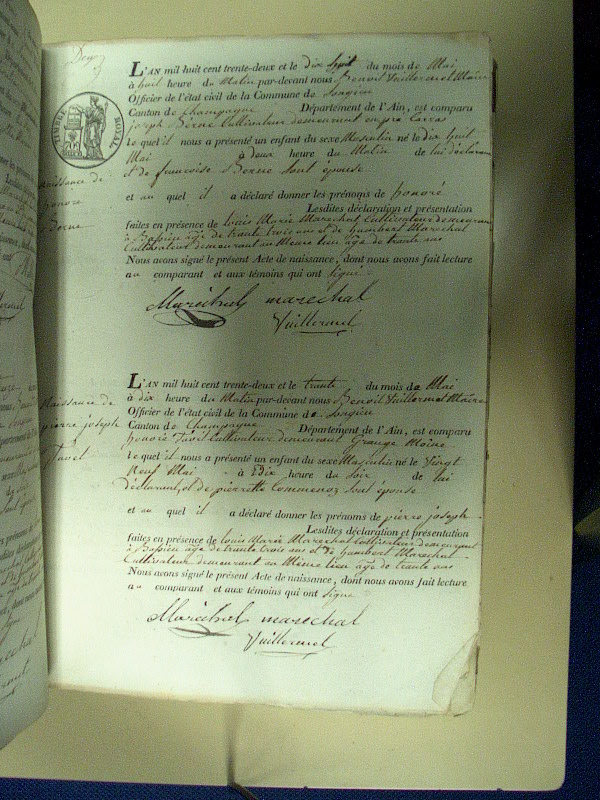 TIMBRE ROYAL
L'AN mil huit cent trente-deux et le dix huit du mois de Mai
à huit heure du Matin par-devant nous Benoit Vuillermet Maire
Officier de l'état civil de la Commune de Songieu
Canton de Champagne Département de l'Ain, est comparu
joseph Berne Cultivateur demeurant
le quel il nous a présenté un enfant du sexe Masculin né le dix huit
Mai à deux heure du Matin de lui déclarant
et de francoise Berne sont épouse
Naissance de
honore
Berne
et au quel il a déclaré donner les prénoms de honoré
Lesdites déclaration et présentation
faites en présence de louis Marie Marechal Cultivateur demeurant
à Bassieu âgé de trante trois ans et de humbert Marechal
Cultivateur demeurant au Même lieu âgé de trante ans
Nous avons signé le présent Acte de naissance, dont nous avons fait lecture
au comparant et aux témoins qui ont signé
Maréchal marechal
Vuillermet
L'AN mil huit cent trente-deux et le trante du mois de Mai
à dix heure du Matin par-devant nous Benoit Vuillermet Maire
Officier de l'état civil de la Commune de Songieu
Canton de Champagne Département de l'Ain, est comparu
honoré Cultivateur demeurant Grange Moine
Naissance de
pierre joseph
le quel il nous a présenté un enfant du sexe Masculin né le Vingt
Neuf Mai à dix heure du Soir de lui
déclarant, et de pierrette sont épouse
et au quel il a déclaré donner les prénoms de pierre joseph
Lesdites déclaration et présentation
faites en présence de louis Marie Marechal Cultivateur demeurant
à Bassieu âgé de trante trois ans et de humbert Marechal
Cultivateur demeurant au Même lieu âgé de trante ans
Nous avons signé le présent Acte de naissance, dont nous avons fait lecture
au comparant et aux témoins qui ont signé
Maréchal marechal
Vuillermet